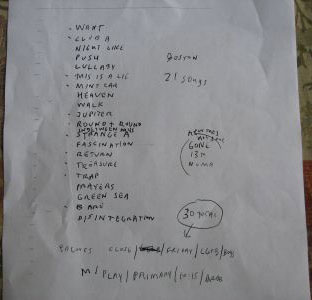 - WANT
- CLUB A
NIGHT LIKE
PUSH
LULLABY
- THIS IS A LIE
- MINT CAR
HEAVEN
WALK
- JUPITER
- ROUND + ROUND
- STRANGE A
FASCINATION
- RETURN
- TREASURE
- TRAP
PRAYERS
GREEN SEA
- BARE
DISINTEGRATION
BOSTON
21 SONGS
GONE
13TH
NUMB
30 TOTAL
CLOSE / FRIDAY / CATS / BOYS
M / PLAY / PRIMARY / 10:15 /